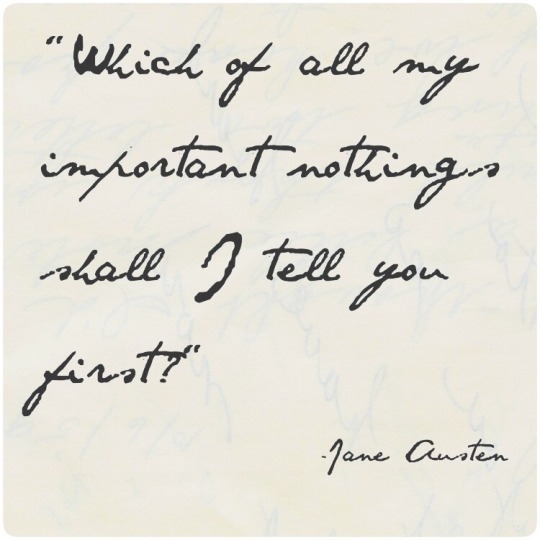 “Which of all my
important nothings
shall I tell you
first?“
-Jane Austen